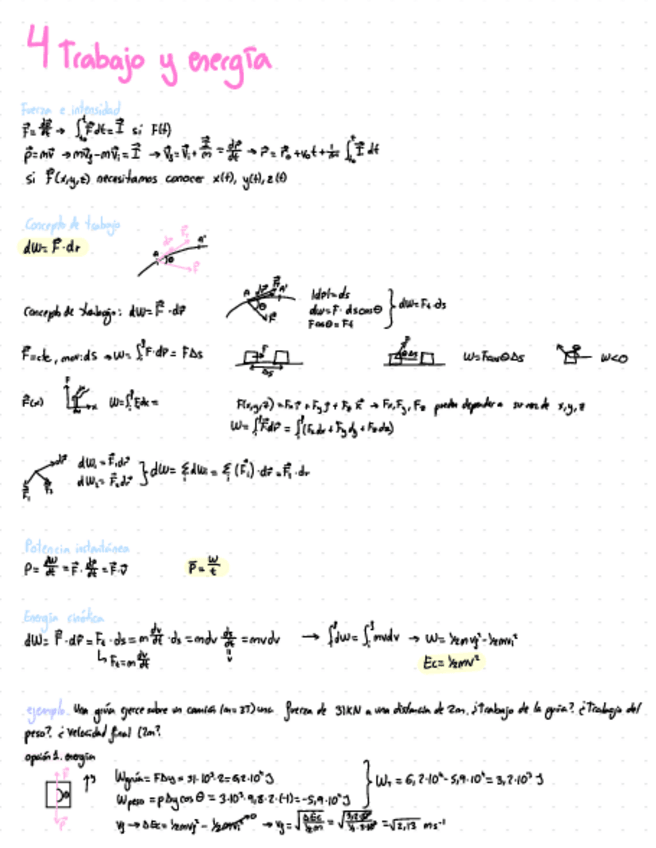 4 Trabajo y energía
Fuerza e intensidad
F⃗ = dp⃗/dt → ∫F⃗dt = I⃗ si F(t)
p⃗=mv⃗ → mv⃗f - mv⃗i = I⃗ → v⃗f = v⃗i + I⃗/m = dr⃗/dt → r⃗ = r⃗0 + v0t + 1/m ∫ I⃗ dt
si F⃗(x,y,z) necesitamos conocer x(t), y(t), z(t)
Concepto de trabajo
dW = F⃗·dr
Concepto de trabajo: dW = F⃗·dr⃗
|dr|=ds
dW=F·dscosθ
Fcosθ=Ft
dW=Ft·ds
F⃗=cte, → W=∫F·dr = FΔs
W=FcosθΔs
W<0
F⃗(x)
F(x,y,z) = Fx i⃗ + Fy j⃗ + Fz k⃗ → Fx, Fy, Fz pueden depender a su vez de x,y,z
W = ∫F⃗dr⃗ = ∫(Fxdx + Fydy + Fzdz)
dW1 = F⃗1dr⃗
dW2 = F⃗2dr⃗
dW = Σ dWi = Σ (F⃗i)·dr⃗ = F⃗·dr
Potencia instantánea
P = dW/dt = F⃗·dr⃗/dt = F⃗·v⃗
P̄ = W/t
Energía cinética
dW = F⃗·dr⃗ = Ft·ds = m dv/dt·ds = mdv ds/dt = mvdv → ∫dW = ∫mvdv → W = ½mvf² - ½mvi²
↳ Ft = m dv/dt
Ec = ½mv²
ejemplo. Una grúa ejerce sobre un camión (m=3T) una fuerza de 31KN a una distancia de 2m. ¿Trabajo de la grúa? ¿Trabajo del
peso? ¿velocidad final (2m?
opción 1. energía
Wgrúa = FΔy = 31·10³·2 = 6,2·10⁴ J
Wpeso = pΔy cosθ = 3·10³·9,8·2·(-1) = -5,9·10⁴ J
WT = 6,2·10⁴ - 5,9·10⁴ = 3,2·10³ J
vf → ΔEc = ½mvf² - ½mvi² → vf = √2,13 ms⁻¹